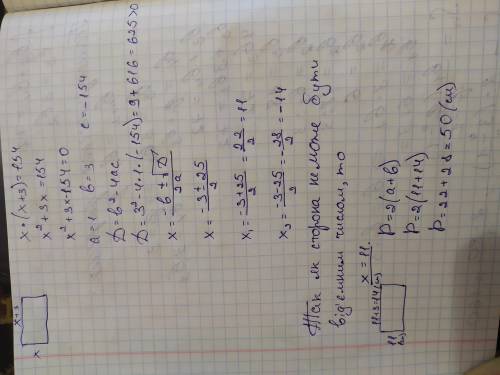 x+3
x
x•(x+3)=154
x²+3x=154
x²+3x-154=0
a=1 b=3 c=-154
D=b²-4ac
D=3²-4·1·(-154)=9+616=625>0
x=-b±√D/2a
x=-3±25/2
x₁=-3+25/2=22/2=11
x₂=-3-25/2=-28/2=-14
Так як сторона не може бути
від'ємним числом, то
x=11.
11+3=14(см)
11
(см)
P=2(a+b)
P=2(11+14)
P=22+28=50(см)